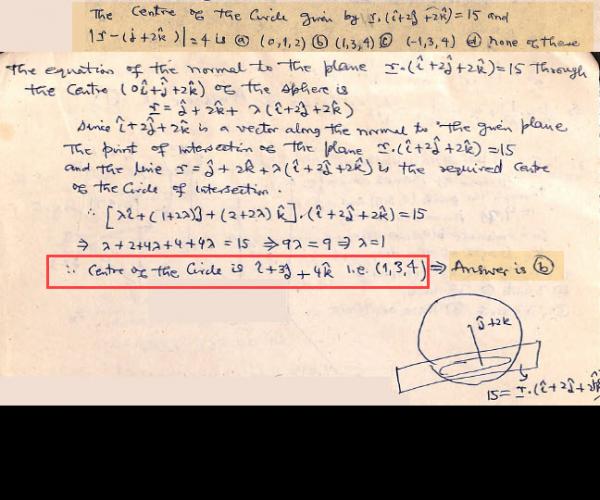 The Centre of the Circle given by r.(î+2ĵ+2k̂)=15 and
|r-(ĵ+2k̂)|=4 is ⓐ (0,1,2) ⓑ (1,3,4) ⓒ (-1,3,4) ⓓ None of these
The equation of the normal to the plane r.(î+2ĵ+2k̂)=15 Through
the Centre (0î+ĵ+2k) of the sphere is
r = ĵ+2k+ λ(î+2ĵ+2k)
Since î+2ĵ+2k is a vector along the normal to the given plane
The point of intersection of the plane r.(î+2ĵ+2k̂)=15
and the line r = ĵ+2k+λ(î+2ĵ+2k̂) is the required Centre
of the Circle of Intersection.
∴ [λî+(1+2λ)ĵ+(2+2λ)k̂].(î+2ĵ+2k̂)=15
⇒ λ+2+4λ+4+4λ=15 ⇒ 9λ=9 ⇒ λ=1
∴ Centre of the Circle is î+3ĵ+4k̂ i.e. (1,3,4) ⇒ Answer is ⓑ
ĵ+2k
15 = r.(î+2ĵ+2k̂